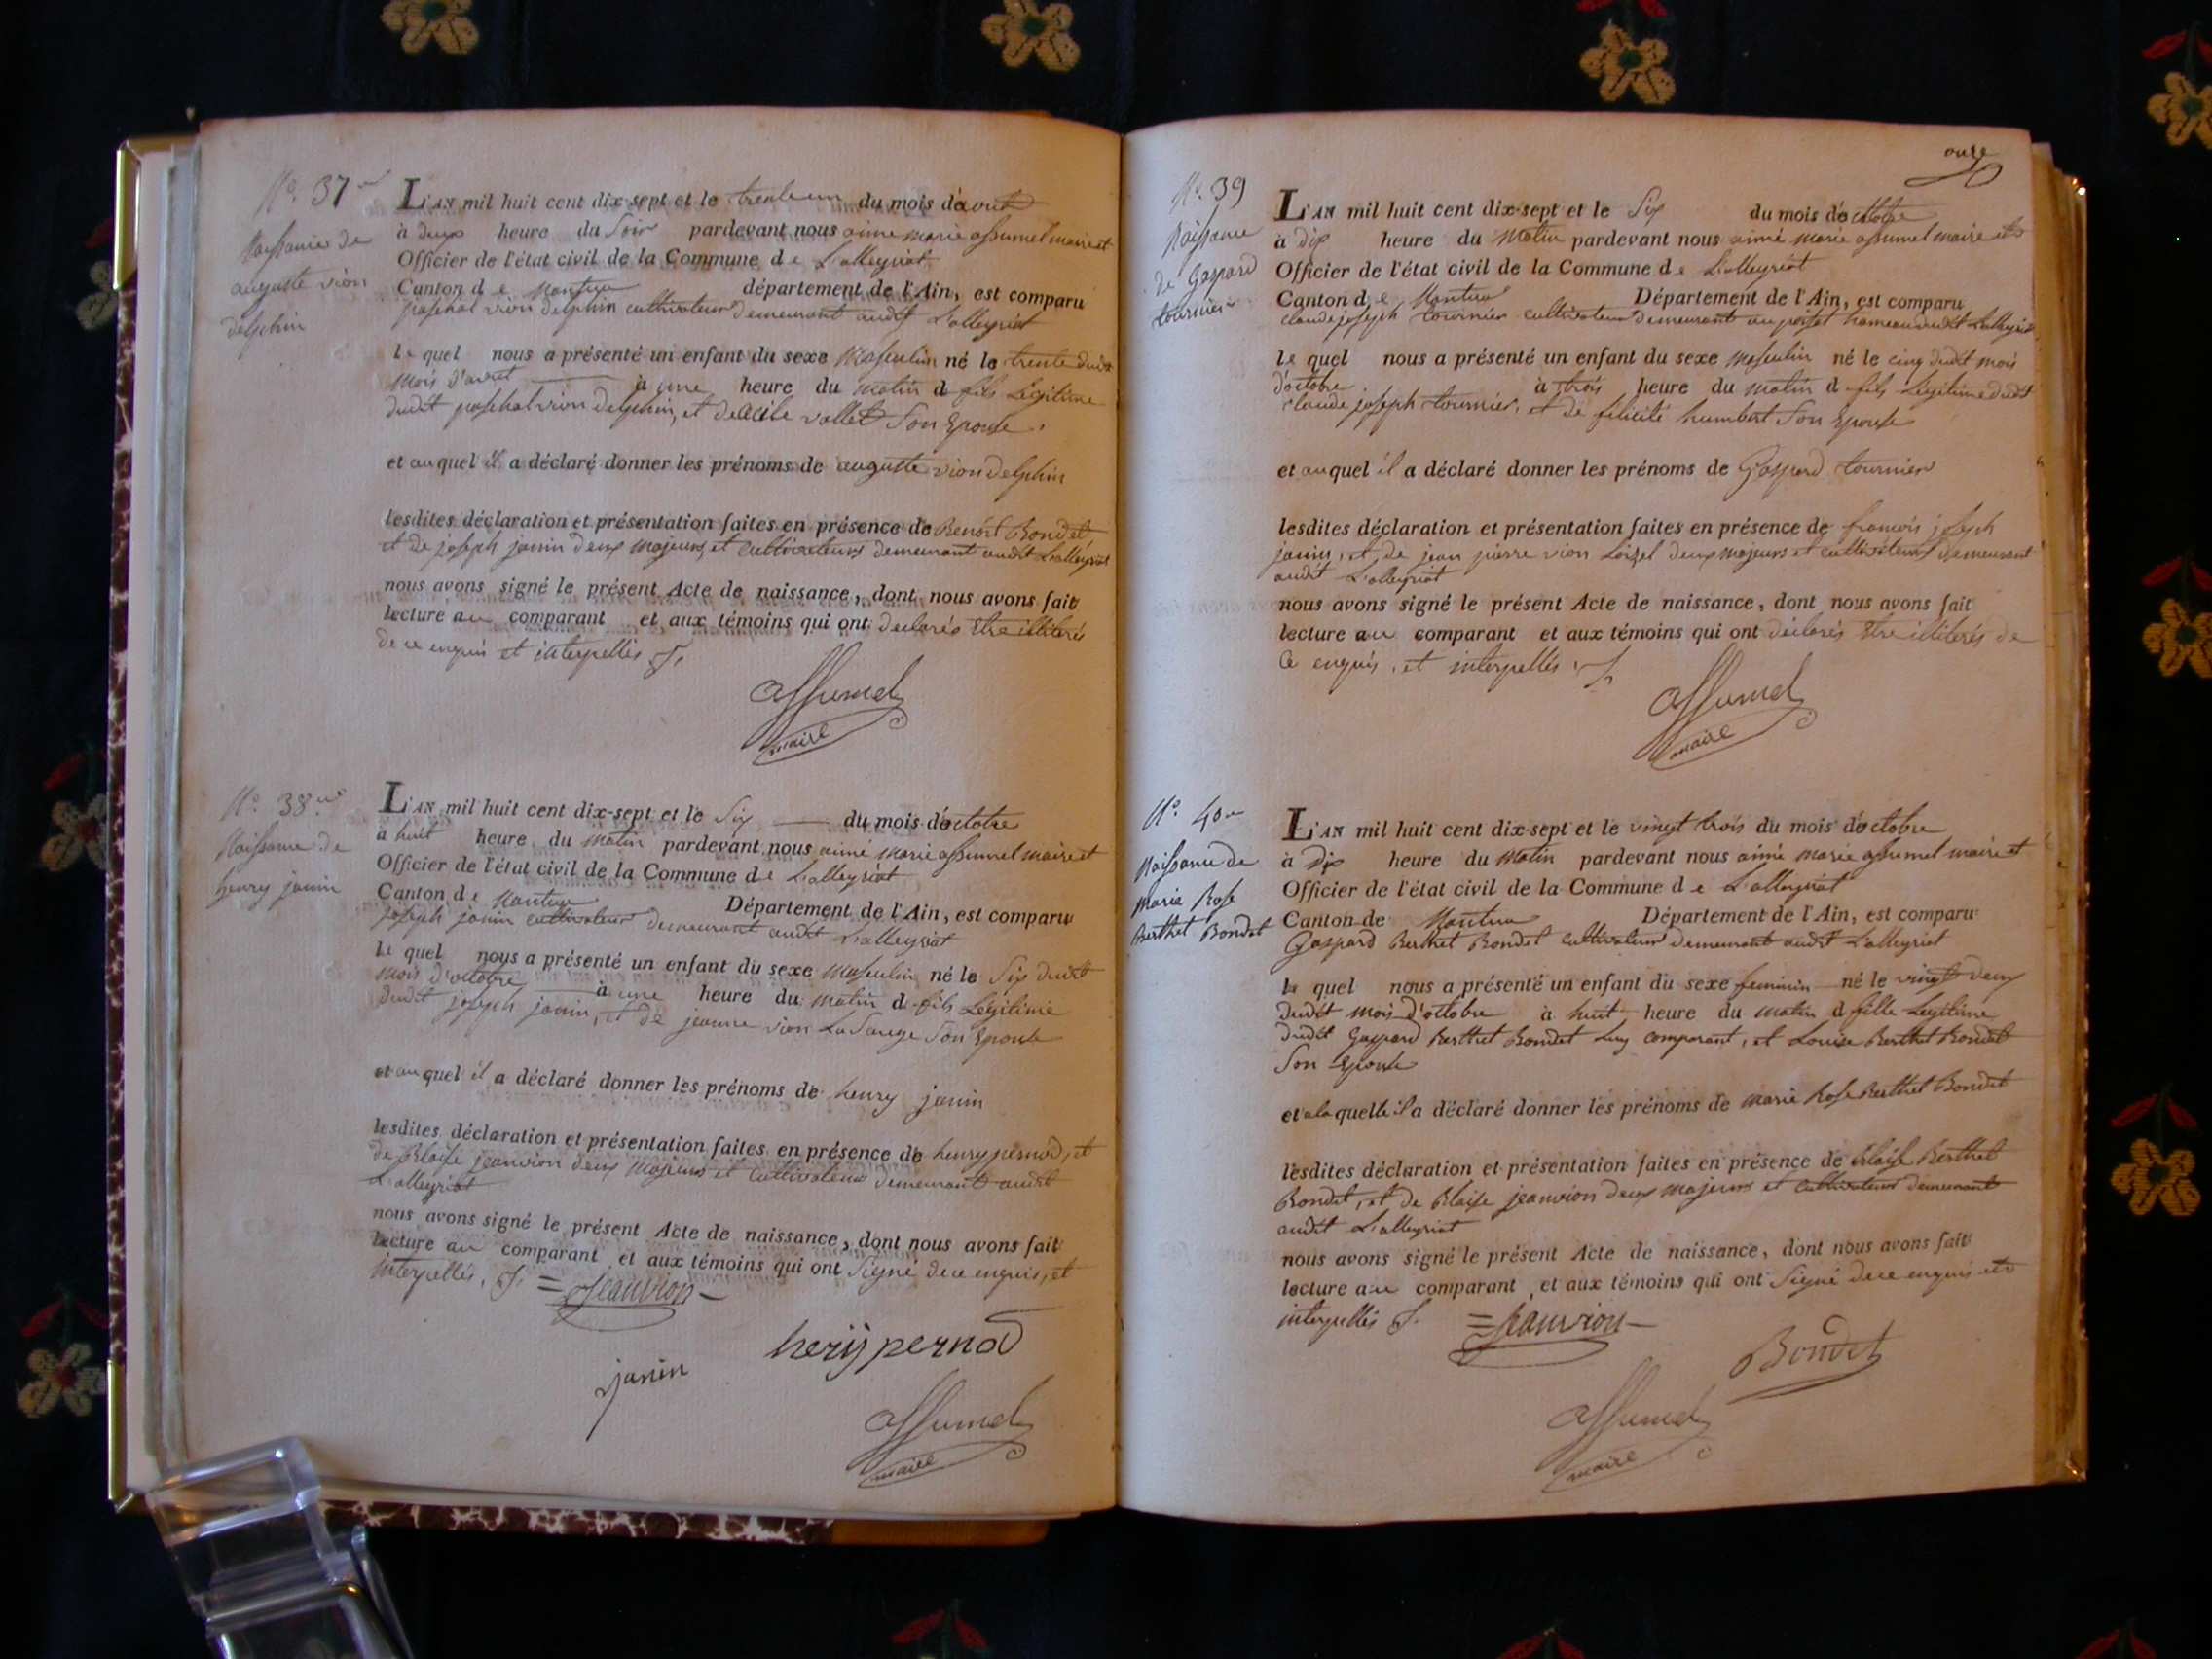 N.º 37
Naissance de
auguste vion
delphin
L'AN mil huit cent dix-sept et le trente un du mois d'aout
à deux heure du Soir pardevant nous aimé marie assumel maire et
Officier de l'état civil de la Commune de L'alleyriat
Canton de Nantua département de l'Ain, est comparu
paschal vion delphin cultivateur demeurant audit L'alleyriat
le quel nous a présenté un enfant du sexe Masculin né le trente dudit
mois d'aout à une heure du matin d fils Légitime
dudit paschal vion Delphin, et de cécile vallet Son Epouse.
et au quel il a déclaré donner les prénoms de auguste vion delphin
lesdites déclaration et présentation faites en présence de Benoit Bondet
et de joseph janin deux majeurs, et cultivateurs demeurant audit L'alleyriat
nous avons signé le présent Acte de naissance, dont nous avons fait
lecture au comparant et aux témoins qui ont déclarés Etre illiterés
de ce enquis et interpellés
assumel
maire
N.º 38
Naissance de
henry janin
L'AN mil huit cent dix-sept et le Six du mois d'octobre
à huit heure du matin pardevant nous aimé marie assumel maire et
Officier de l'état civil de la Commune de L'alleyriat
Canton de Nantua Département de l'Ain, est comparu
joseph janin cultivateur demeurant audit L'alleyriat
le quel nous a présenté un enfant du sexe masculin né le Six dudit
mois d'octobre à une heure du matin d fils Légitime
dudit joseph janin, et de jeanne vion Son Epouse
et au quel il a déclaré donner les prénoms de henry janin
lesdites déclaration et présentation faites en présence de henry pernod, et
de Blaise jeanvion deux majeurs et cultivateurs demeurant audit
L'alleyriat
nous avons signé le présent Acte de naissance, dont nous avons fait
lecture au comparant et aux témoins qui ont Signé de ce enquis, et
interpellés.
Jeanvion
herij pernod
janin
assumel
maire
onze
N.º 39
Naissance
de Gaspard
tournier
L'AN mil huit cent dix-sept et le Six du mois d'octobre
à dix heure du Matin pardevant nous aimé marie assumel maire et
Officier de l'état civil de la Commune de L'alleyriat
Canton de Nantua Département de l'Ain, est comparu
claude joseph tournier cultivateur demeurant au poisat hameau dudit L'alleyriat
le quel nous a présenté un enfant du sexe masculin né le cinq dudit mois
d'octobre à trois heure du matin d fils Légitime dudit
claude joseph tournier, et de félicité humbert Son Epouse
et au quel il a déclaré donner les prénoms de Gaspard tournier
lesdites déclaration et présentation faites en présence de francois joseph
janin, et de jean pierre vion Loisel deux majeurs et cultivateurs demeurant
audit L'alleyriat
nous avons signé le présent Acte de naissance, dont nous avons fait
lecture au comparant et aux témoins qui ont déclarés Etre illiterés de
ce enquis, et interpellés.
assumel
maire
N.º 40
Naissance de
Marie Rose
Berthet Bondet
L'AN mil huit cent dix-sept et le vingt trois du mois d'octobre
à Dix heure du Matin pardevant nous aimé marie assumel maire et
Officier de l'état civil de la Commune de L'alleyriat
Canton de Nantua Département de l'Ain, est comparu
Gaspard Berthet Bondet cultivateur demeurant audit L'alleyriat
le quel nous a présenté un enfant du sexe feminin né le vingt deux
dudit mois d'octobre à huit heure du matin d fille Légitime
dudit Gaspard Berthet Bondet Luy comparant, et Louise Berthet Bondet
Son Epouse
et a la quelle il a déclaré donner les prénoms de marie Rose Berthet Bondet
lesdites déclaration et présentation faites en présence de Blaise Berthet
Bondet, et de Blaise jeanvion deux majeurs et cultivateurs demeurant
audit L'alleyriat
nous avons signé le présent Acte de naissance, dont nous avons fait
lecture au comparant, et aux témoins qui ont Signé de ce enquis et
interpellés
Jeanvion
Bondet
assumel
maire